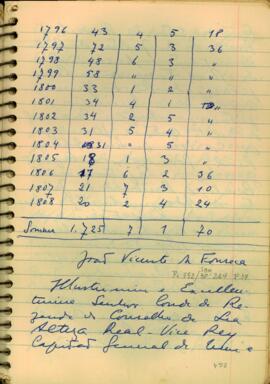 1796 43 4 5 18
1797 72 5 3 36
1798 48 6 3 "
1799 58 " " "
1800 33 1 2 "
1801 34 4 1
1802 34 2 5 "
1803 31 5 4 "
1804 31 " 5 "
1805 18 1 3 "
1806 17 6 2 36
1807 21 7 3 10
1808 20 2 4 24
Somma 1.725 7 1 70
João Vicente da Fonseca
Illustrissimo e Excellen
tissimo Senhor Conde de Re
zende do Conselho de Sua
Alteza Real - Vice Rey
Capitão General de